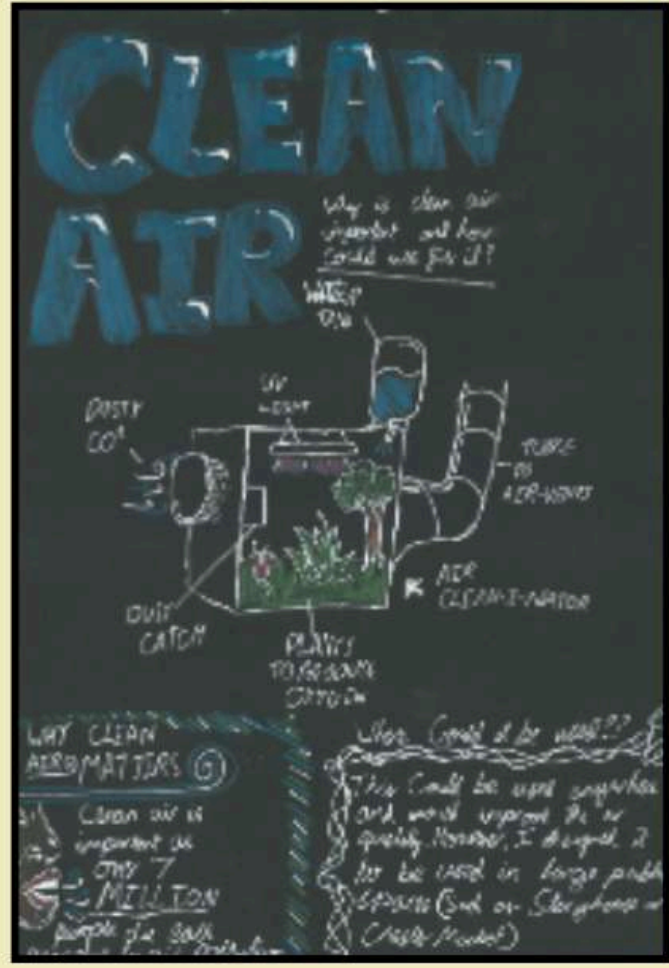 CLEAN
AIR
Why is clean air
important and how
could we fix it?
WATER
DUSTY
CO²
UV
LIGHT
TUBE
TO
AIR-VENTS
DUST
CATCH
AIR
CLEAN-I-NATOR
PLANTS
TO PRODUCE
WHY CLEAN
MATTERS
Clean air is
important as
7
MILLION
people die each
Where Could it be used??
This Could be used anywhere
and would improve the air
quality However, I designed it
to be used in large public
spaces (Such as
Market)